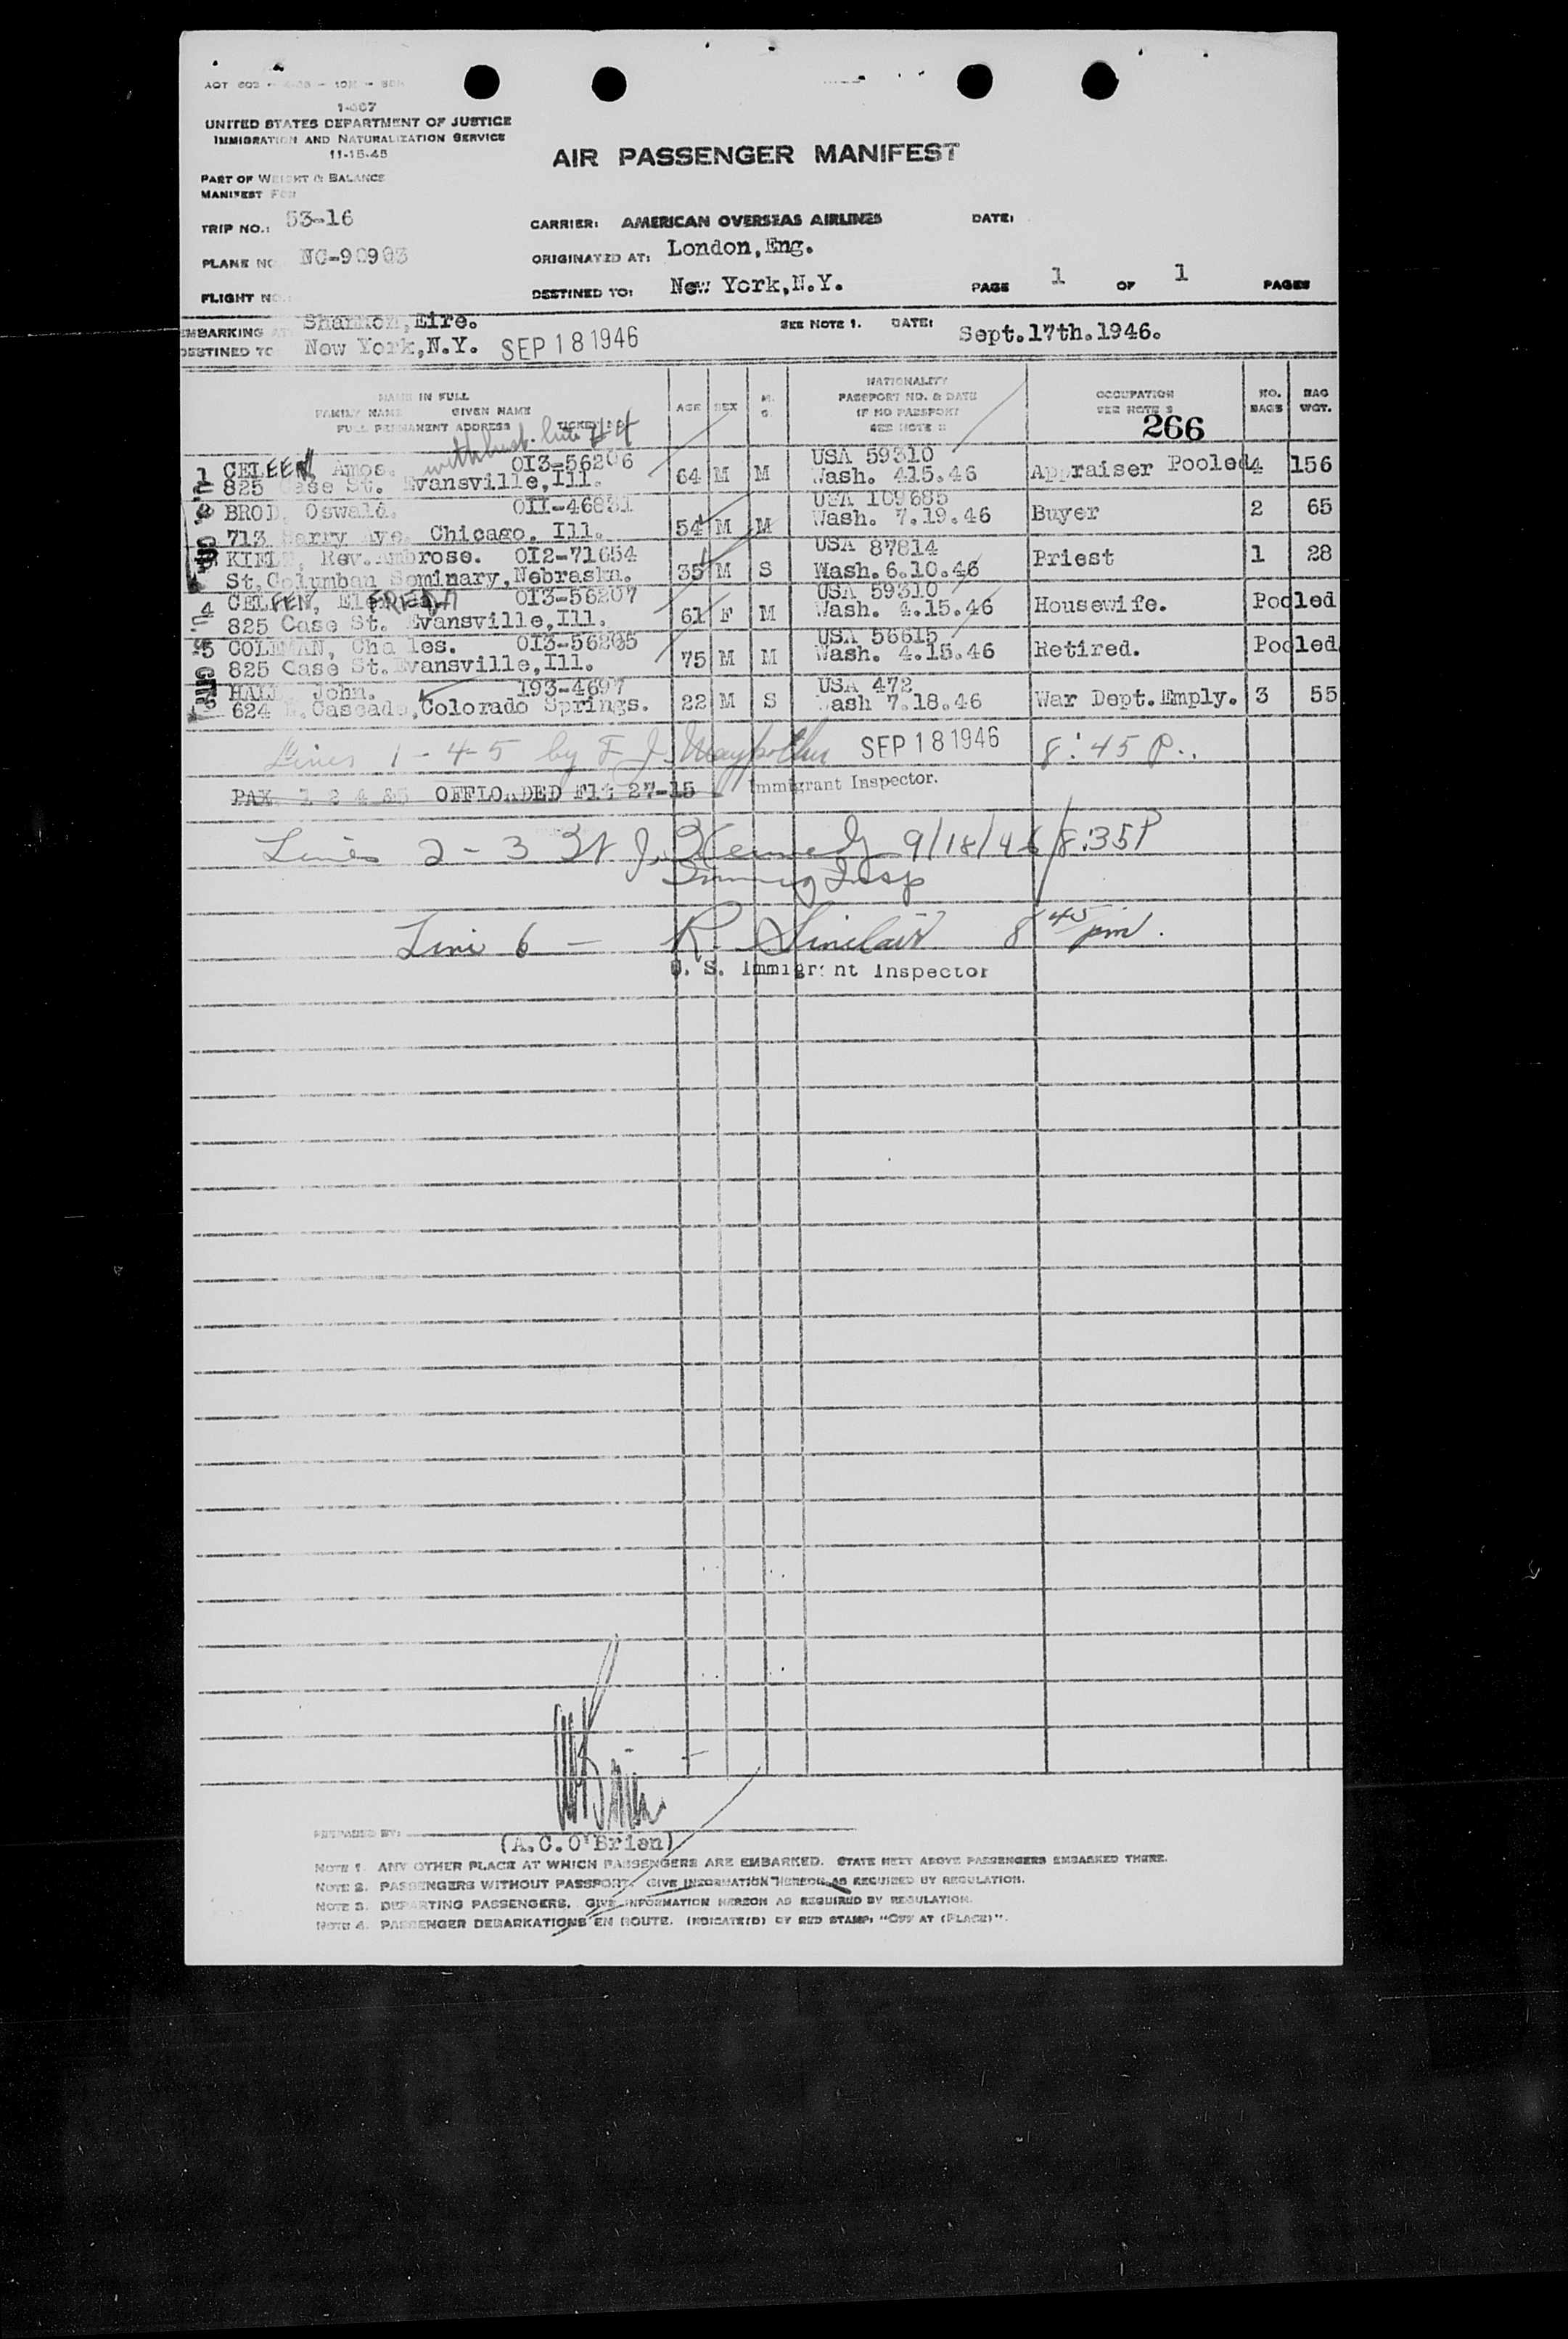 1-467
UNITED STATES DEPARTMENT OF JUSTICE
IMMIGRATION AND NATURALIZATION SERVICE
11-15-45
AIR PASSENGER MANIFEST
PART OF WEIGHT & BALANCE
MANIFEST FOR
TRIP NO.: 53-16
CARRIER: AMERICAN OVERSEAS AIRLINES
DATE:
PLANE NO NC-90903
ORIGINATED AT: London, Eng.
FLIGHT NO.:
DESTINED TO: New York, N.Y.
PAGE 1 OF 1 PAGES
EMBARKING AT Shannon, Eire.
SEE NOTE 1. DATE: Sept.17th.1946.
DESTINED TO New York, N.Y. SEP 18 1946
NAME IN FULL
FAMILY NAME GIVEN NAME
FULL PERMANENT ADDRESS TICKET NO.
AGE SEX M. S.
NATIONALITY
PASSPORT NO. & DATE
IF NO PASSPORT
SEE NOTE 2
OCCUPATION
SEE NOTE 3
NO. BAGS
BAG WGT.
266
with husb. line #4
1 CELEEN, Amos. 0I3-56206 64 M M USA 59310 Appraiser Pooled 4 156
825 Case St. Evansville, Ill. Wash. 415.46
BROD, Oswald. 0II-46831 54 M M USA 109685 Buyer 2 65
713 Barry Ave. Chicago. Ill. Wash. 7.19.46
Rev. Ambrose. 0I2-71654 35 M S USA 87814 Priest 1 28
St. Columban Seminary, Nebraska. Wash. 6.10.46
4 CELEEN, FRIEDA 0I3-56207 61 F M USA 59310 Housewife. Pooled
825 Case St. Evansville, Ill. Wash. 4.15.46
5 COLEMAN, Charles. 0I3-56205 75 M M USA 56615 Retired. Pooled.
825 Case St. Evansville, Ill. Wash. 4.15.46
John. 193-4697 22 M S USA 472 War Dept. Emply. 3 55
624 N. Cascade, Colorado Springs. Wash 7.18.46
Lines 1-4-5 by F. J. SEP 18 1946 8:45 P.
PAX 1 2 4 &5 OFFLOADED Flt 27-15 Immigrant Inspector.
Lines 2-3 J. Kennedy 9/18/46 8:35P
Immig Insp
Line 6 - R. Sinclair 8 45 pm.
U. S. Immigrant Inspector
PREPARED BY:
(A.C.O'Brien)
NOTE 1. ANY OTHER PLACE AT WHICH PASSENGERS ARE EMBARKED. STATE NEXT ABOVE PASSENGERS EMBARKED THERE.
NOTE 2. PASSENGERS WITHOUT PASSPORT. GIVE INFORMATION HEREON AS REQUIRED BY REGULATION.
NOTE 3. DEPARTING PASSENGERS. GIVE INFORMATION HEREON AS REQUIRED BY REGULATION.
NOTE 4. PASSENGER DEBARKATIONS EN ROUTE. INDICATE(D) BY RED STAMP: "OFF AT (PLACE)".